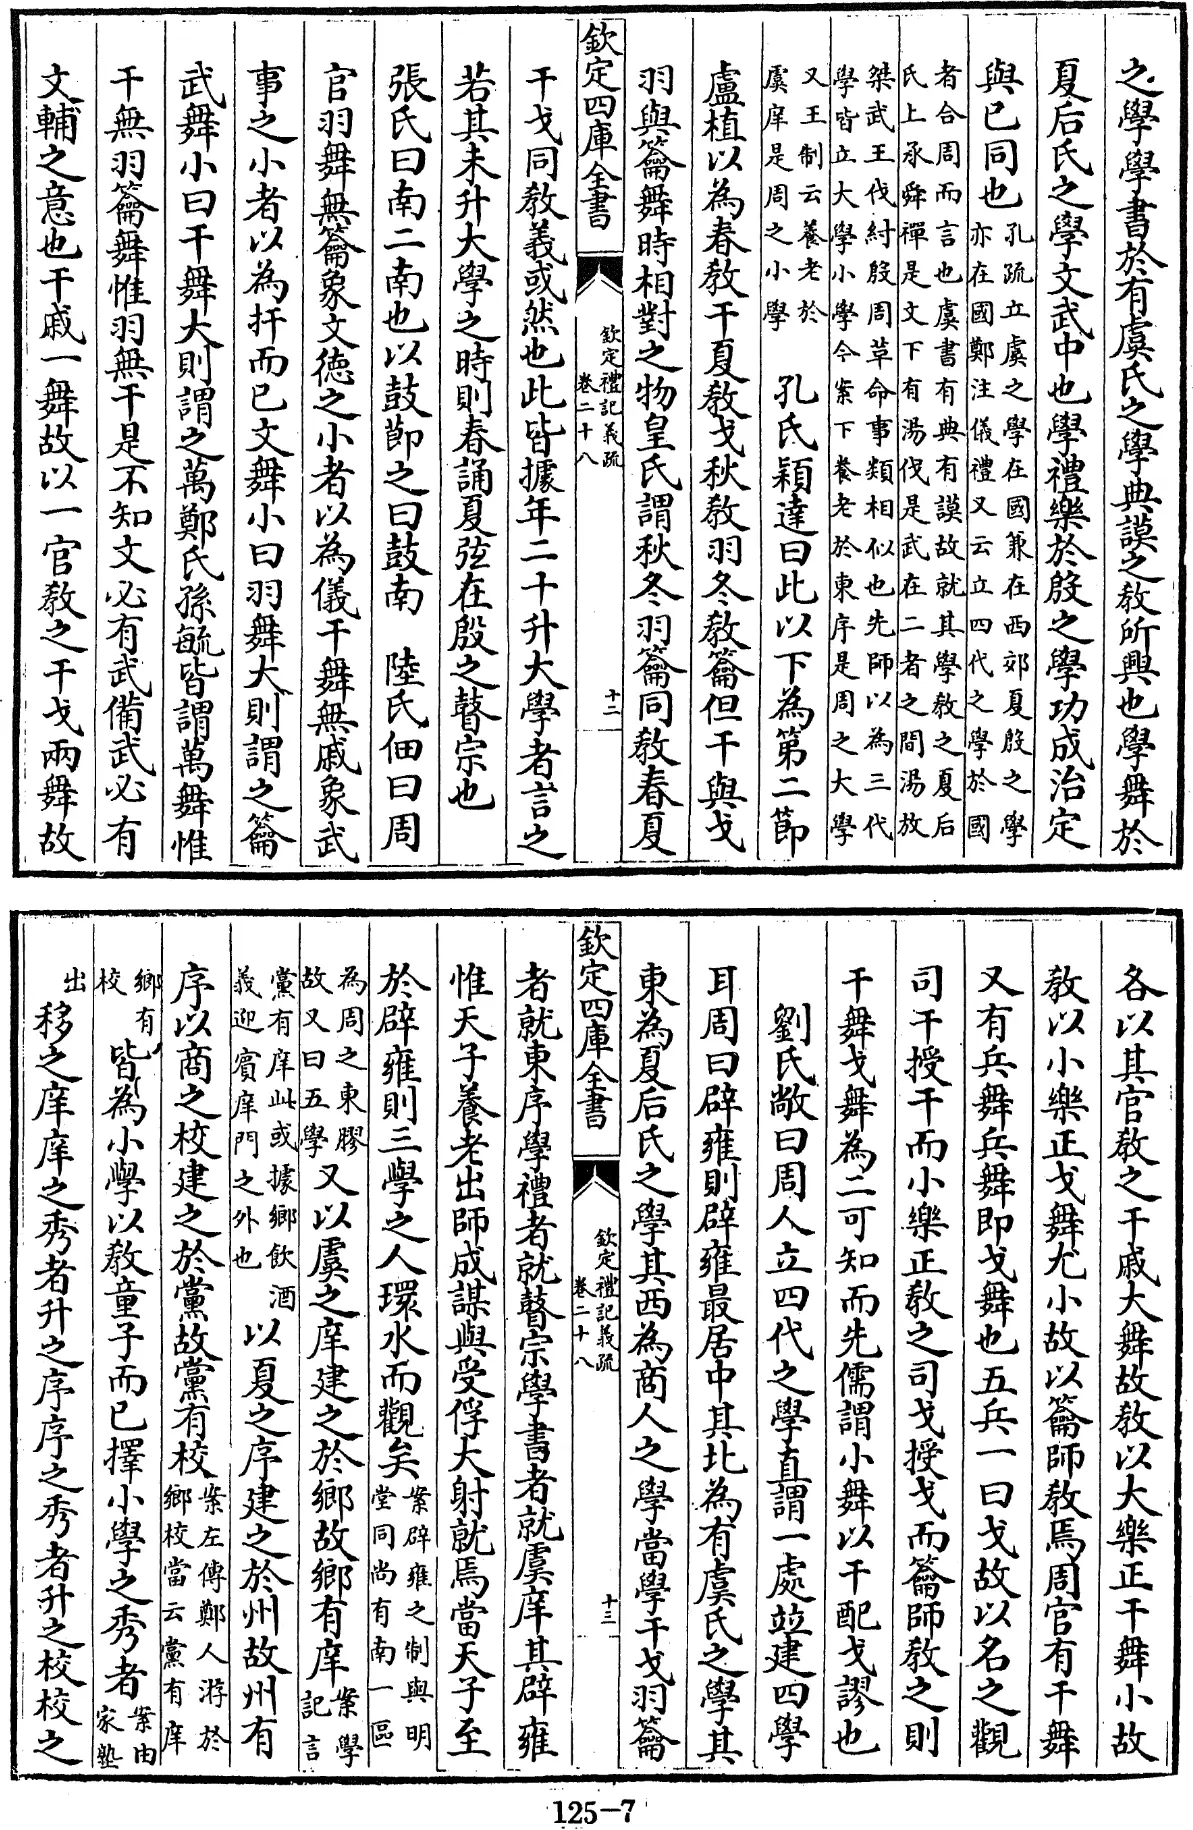 之學學書於有虞氏之學典謨之教所興也學舞於
夏后氏之學文武中也學禮樂於殷之學功成治定
與已同也孔疏立虞之學在國兼在西郊夏殷之學
亦在國鄭注儀禮又云立四代之學於國
者合周而言也虞書有典有謨故就其學教之夏后
氏上承舜禪是文下有湯伐是武在二者之間湯放
桀武王伐紂殷周革命事類相似也先師以為三代
學皆立大學小學今案下養老於東序是周之大學
又王制云養老於
虞庠是周之小學
孔氏穎達曰此以下為第二節
盧植以為春教干夏教戈秋教羽冬教籥但干與戈
羽與籥舞時相對之物皇氏謂秋冬羽籥同教春夏
欽定四庫全書
欽定禮記義疏
卷二十八
十二
干戈同教義或然也此皆據年二十升大學者言之
若其未升大學之時則春誦夏弦在殷之瞽宗也
張氏曰南二南也以鼓節之曰鼓南 陸氏佃曰周
官羽舞無籥象文德之小者以為儀干舞無戚象武
事之小者以為扞而已文舞小曰羽舞大則謂之籥
武舞小曰干舞大則謂之萬鄭氏孫毓皆謂萬舞惟
干無羽籥舞惟羽無干是不知文必有武備武必有
文輔之意也干戚一舞故以一官教之干戈兩舞故
各以其官教之干戚大舞故教以大樂正干舞小故
教以小樂正戈舞尤小故以籥師教焉周官有干舞
又有兵舞兵舞即戈舞也五兵一曰戈故以名之觀
司干授干而小樂正教之司戈授戈而籥師教之則
干舞戈舞為二可知而先儒謂小舞以干配戈謬也
劉氏敞曰周人立四代之學直謂一處竝建四學
耳周曰辟雍則辟雍最居中其北為有虞氏之學其
東為夏后氏之學其西為商人之學當學干戈羽籥
欽定四庫全書
欽定禮記義疏
卷二十八
十三
者就東序學禮者就瞽宗學書者就虞庠其辟雍
惟天子養老出師成謀與受俘大射就焉當天子至
於辟雍則三學之人環水而觀矣案辟雍之制與明
堂同尚有南一區
為周之東膠
故又曰五學
又以虞之庠建之於鄉故鄉有庠案學
記言
黨有庠此或據鄉飲酒
義迎賓庠門之外也
以夏之序建之於州故州有
序以商之校建之於黨故黨有校案左傳鄭人游於
鄉校當云黨有庠
鄉有
校
皆為小學以教童子而已擇小學之秀者案由
家塾
出
移之庠庠之秀者升之序序之秀者升之校校之
125-7